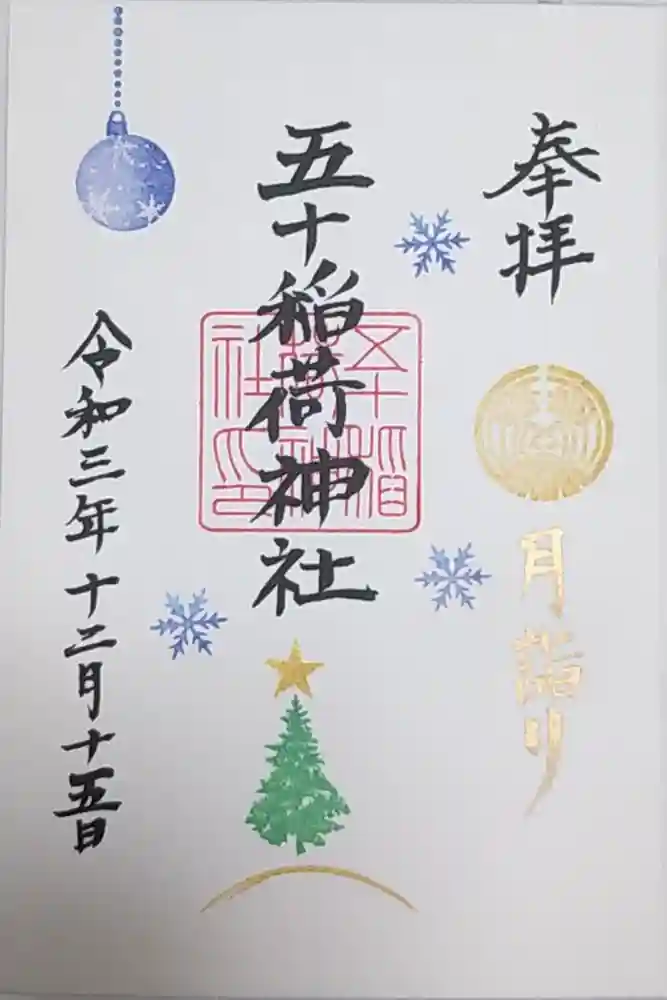 奉拝
月詣り
五十稲荷神社
五十稲荷神社印
令和三年十二月十五日